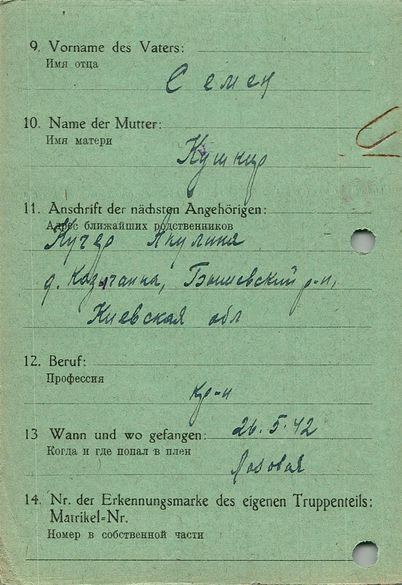 9. Vorname des Vaters:
Имя отца
Семен
10. Name der Mutter:
Имя матери
Кушнир
11. Anschrift der nächsten Angehörigen:
Адрес ближайших родственников
Кучер Акулина
д. Бышевский р-н,
Киевская обл
12. Beruf:
Профессия
кр-н
13 Wann und wo gefangen: 26.5.42
Когда и где попал в плен
Лозовая
14. Nr. der Erkennungsmarke des eigenen Truppenteils:
Matrikel=Nr.
Номер в собственной части